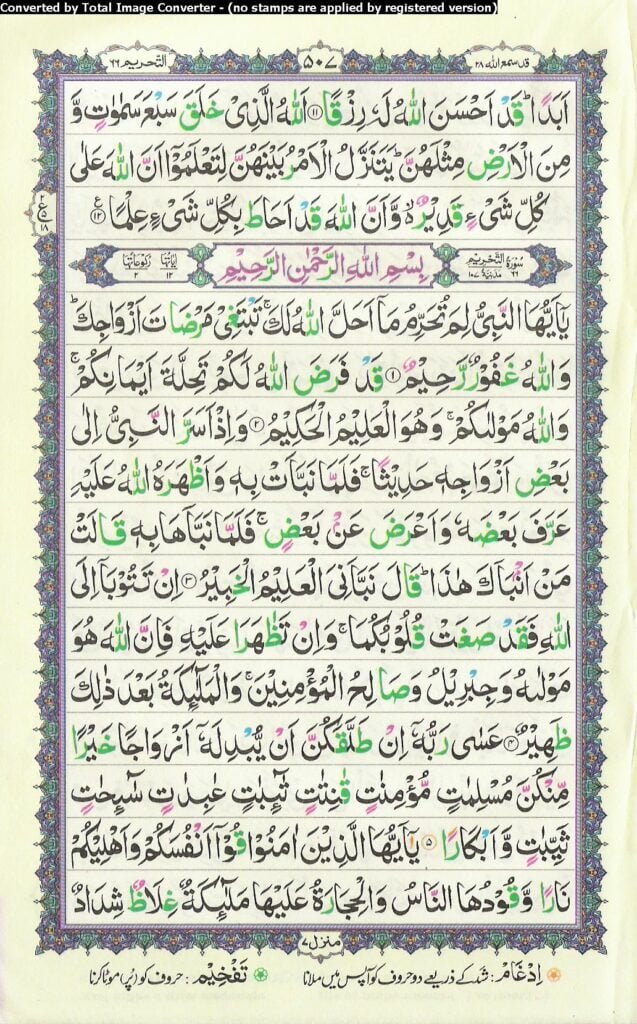 Converted by Total Image Converter - (no stamps are applied by registered version)
قد سمع الله ۲۸
۵۰۷
التحریم ۶۶
اَبَدًا ؕ قَدْ اَحْسَنَ اللّٰهُ لَهٗ رِزْقًا ﴿۱۱﴾ اَللّٰهُ الَّذِیْ خَلَقَ سَبْعَ سَمٰوٰتٍ وَّ
مِنَ الْاَرْضِ مِثْلَهُنَّ ؕ یَتَنَزَّلُ الْاَمْرُ بَیْنَهُنَّ لِتَعْلَمُوْۤا اَنَّ اللّٰهَ عَلٰی
كُلِّ شَیْءٍ قَدِیْرٌ ۙ وَّ اَنَّ اللّٰهَ قَدْ اَحَاطَ بِكُلِّ شَیْءٍ عِلْمًا ﴿۱۲﴾
ع
۱۸
سُوْرَةُ التَّحْرِیْمِ
۶۶ مدنیة ۱۰۷
بِسْمِ اللّٰهِ الرَّحْمٰنِ الرَّحِیْمِ
اٰیاتها ۱۲
رکوعاتها ۲
یٰۤاَیُّهَا النَّبِیُّ لِمَ تُحَرِّمُ مَاۤ اَحَلَّ اللّٰهُ لَكَ ۚ تَبْتَغِیْ مَرْضَاتَ اَزْوَاجِكَ ؕ
وَ اللّٰهُ غَفُوْرٌ رَّحِیْمٌ ﴿۱﴾ قَدْ فَرَضَ اللّٰهُ لَكُمْ تَحِلَّةَ اَیْمَانِكُمْ ۚ
وَ اللّٰهُ مَوْلٰىكُمْ ۚ وَ هُوَ الْعَلِیْمُ الْحَكِیْمُ ﴿۲﴾ وَ اِذْ اَسَرَّ النَّبِیُّ اِلٰی
بَعْضِ اَزْوَاجِهٖ حَدِیْثًا ۚ فَلَمَّا نَبَّاَتْ بِهٖ وَ اَظْهَرَهُ اللّٰهُ عَلَیْهِ
عَرَّفَ بَعْضَهٗ وَ اَعْرَضَ عَنْۢ بَعْضٍ ۚ فَلَمَّا نَبَّاَهَا بِهٖ قَالَتْ
مَنْ اَنْۢبَاَكَ هٰذَا ؕ قَالَ نَبَّاَنِیَ الْعَلِیْمُ الْخَبِیْرُ ﴿۳﴾ اِنْ تَتُوْبَاۤ اِلَی
اللّٰهِ فَقَدْ صَغَتْ قُلُوْبُكُمَا ۚ وَ اِنْ تَظٰهَرَا عَلَیْهِ فَاِنَّ اللّٰهَ هُوَ
مَوْلٰىهُ وَ جِبْرِیْلُ وَ صَالِحُ الْمُؤْمِنِیْنَ ۚ وَ الْمَلٰٓىِٕكَةُ بَعْدَ ذٰلِكَ
ظَهِیْرٌ ﴿۴﴾ عَسٰی رَبُّهٗۤ اِنْ طَلَّقَكُنَّ اَنْ یُّبْدِلَهٗۤ اَزْوَاجًا خَیْرًا
مِّنْكُنَّ مُسْلِمٰتٍ مُّؤْمِنٰتٍ قٰنِتٰتٍ تٰٓىِٕبٰتٍ عٰبِدٰتٍ سٰٓىِٕحٰتٍ
ثَیِّبٰتٍ وَّ اَبْكَارًا ﴿۵﴾ یٰۤاَیُّهَا الَّذِیْنَ اٰمَنُوْا قُوْۤا اَنْفُسَكُمْ وَ اَهْلِیْكُمْ
نَارًا وَّ قُوْدُهَا النَّاسُ وَ الْحِجَارَةُ عَلَیْهَا مَلٰٓىِٕكَةٌ غِلَاظٌ شِدَادٌ
منزل ۷
اِدْغَام: شد کے ذریعے دو حروف کو آپس میں ملانا
تَفْخِیْم: حروف کو (پُر) موٹا کرنا